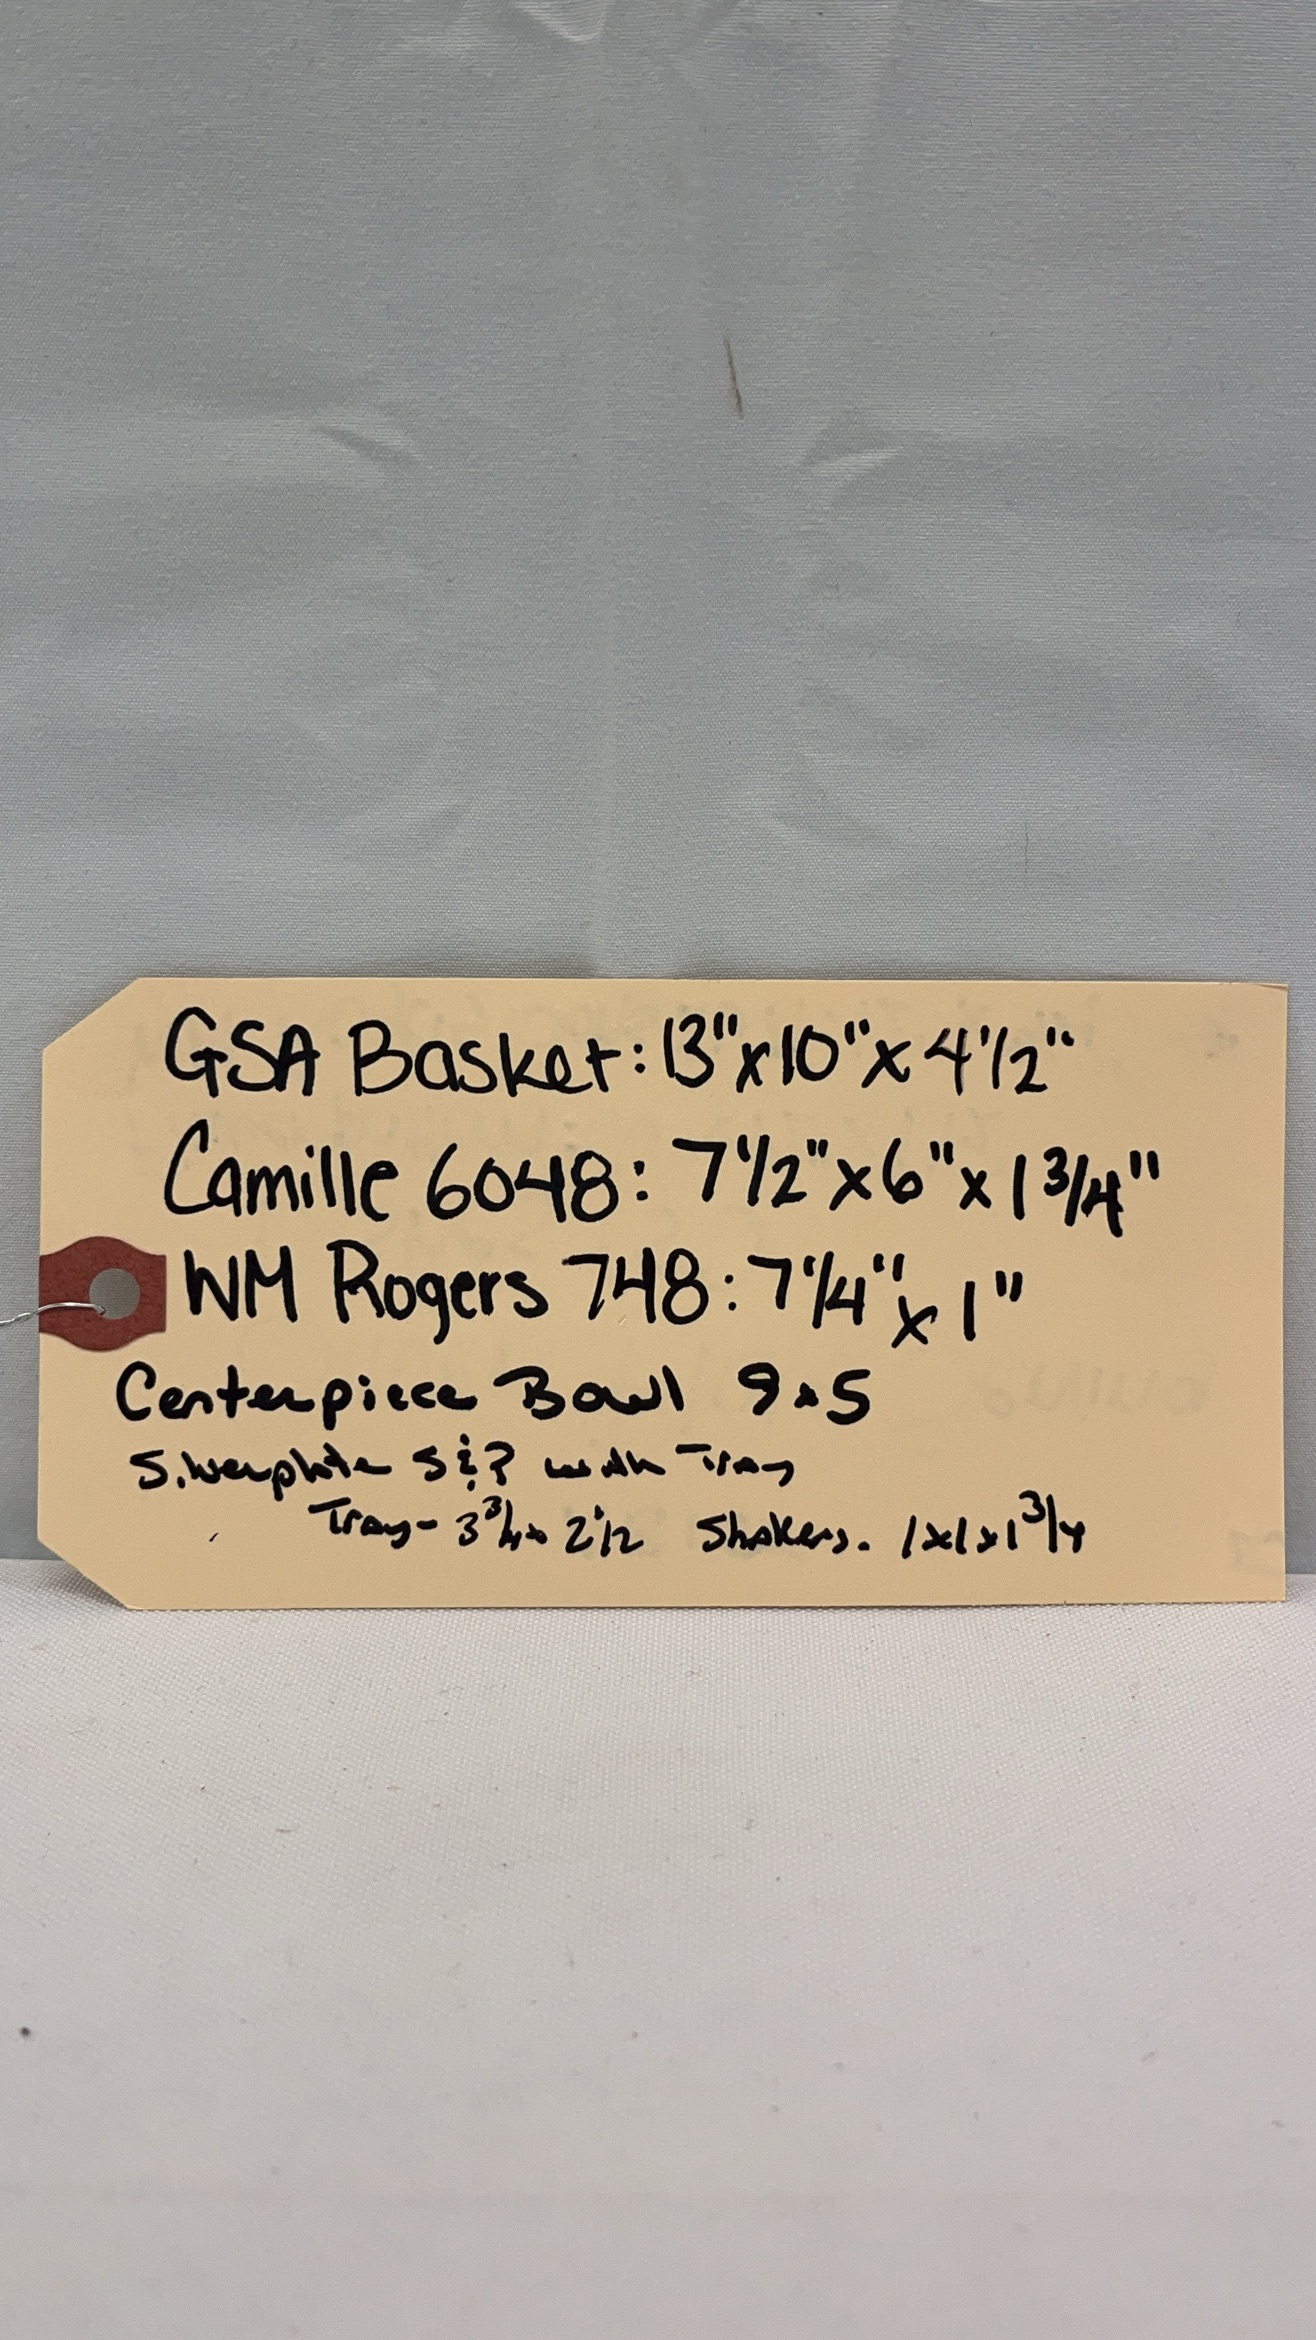 GSA Basket: 13" x 10" x 4 1/2"
Camille 6048: 7 1/2" x 6" x 1 3/4"
WM Rogers 748: 7 1/4" x 1"
Centerpiece Bowl 9 x 5
Silverplate S & P with Tray
Tray - 3 3/4 x 2 1/2 Shakers. 1x1x1 3/4